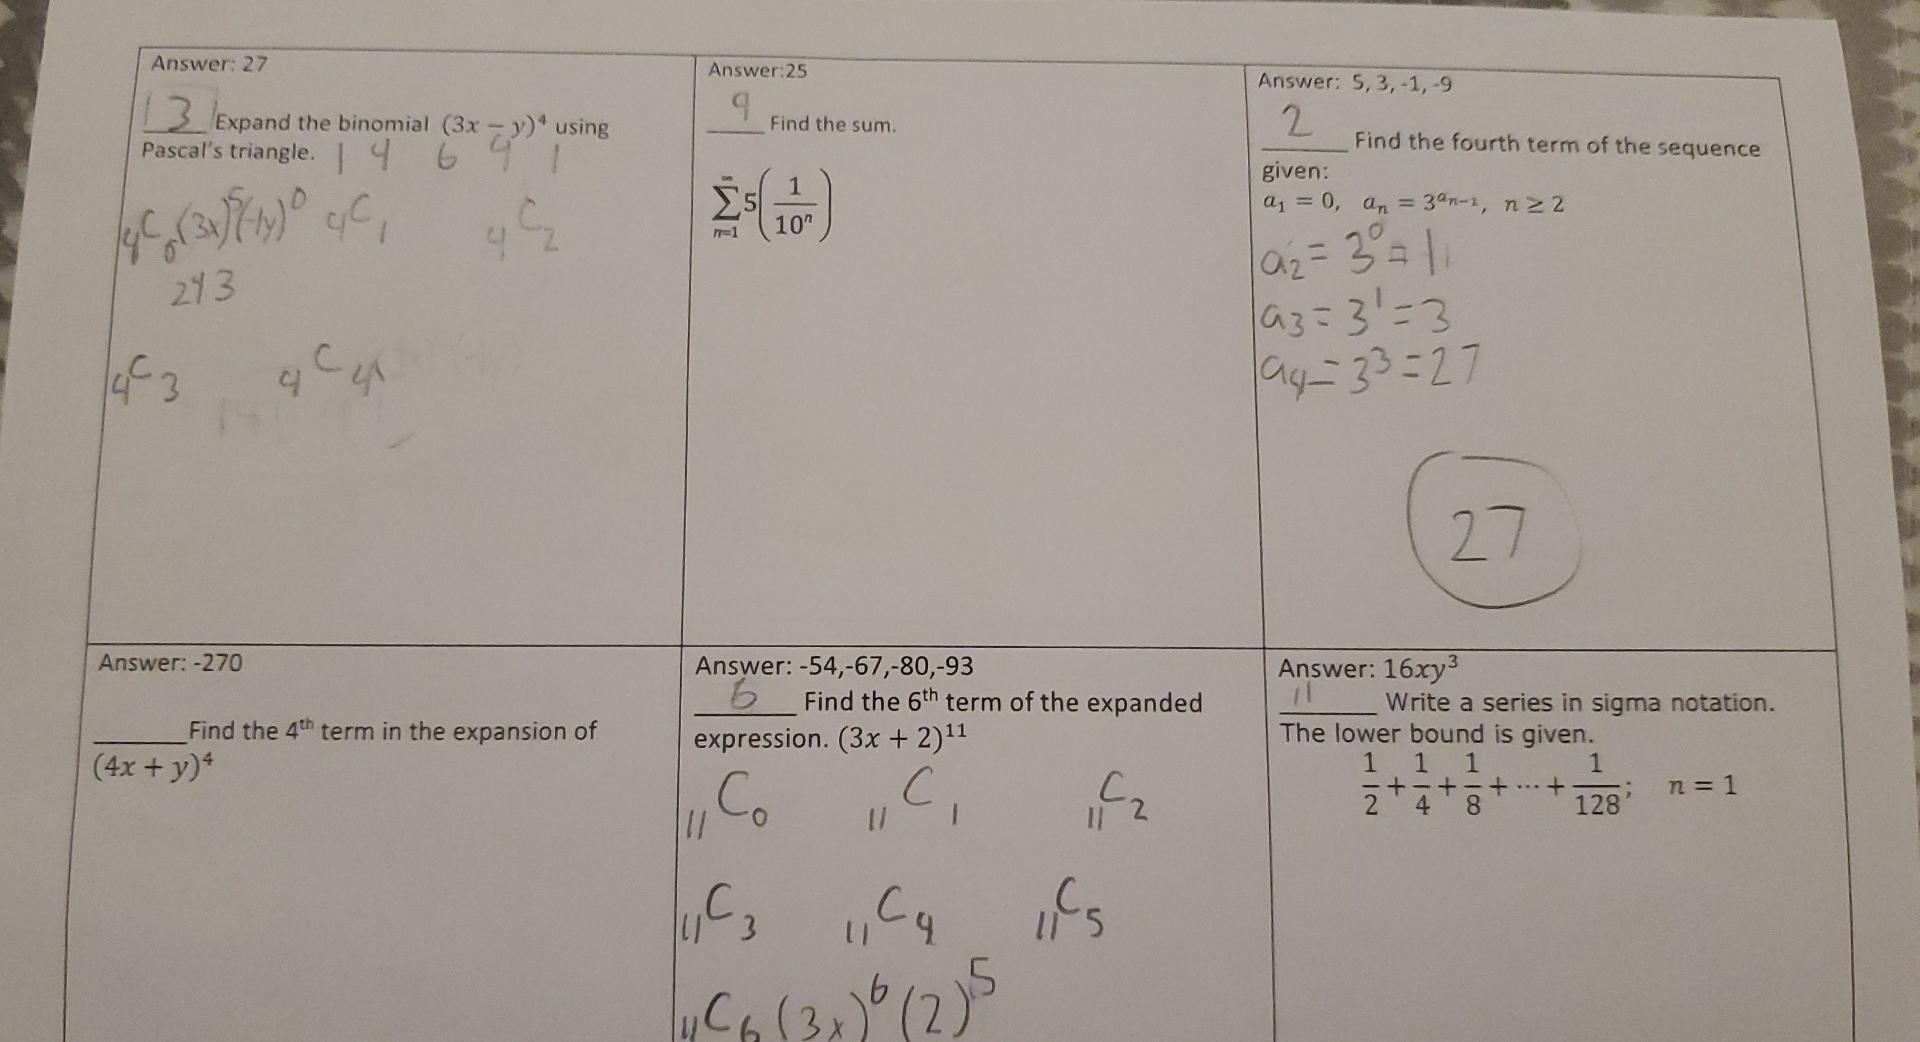 Answer: 27
13 Expand the binomial (3x − y)⁴ using
Pascal's triangle. 1 4 6 4 1
₄C₀(3x)⁵(-1y)⁰ ₄C₁ ₄C₂
243
₄C₃ ₄C₄(
Answer:25
9 Find the sum.
∞
∑ 5(1/10ⁿ)
n=1
Answer: 5, 3, -1, -9
2 Find the fourth term of the sequence
given:
a₁ = 0, aₙ = 3^(aₙ₋₁), n ≥ 2
a₂ = 3⁰ = 1
a₃ = 3¹ = 3
a₄ = 3³ = 27
27
Answer: -270
____ Find the 4th term in the expansion of
(4x + y)⁴
Answer: -54,-67,-80,-93
6 Find the 6th term of the expanded
expression. (3x + 2)¹¹
₁₁C₀ ₁₁C₁ ₁₁C₂
₁₁C₃ ₁₁C₄ ₁₁C₅
₁₁C₆ (3x)⁶ (2)⁵
Answer: 16xy³
11 Write a series in sigma notation.
The lower bound is given.
1/2 + 1/4 + 1/8 + ⋯ + 1/128; n = 1